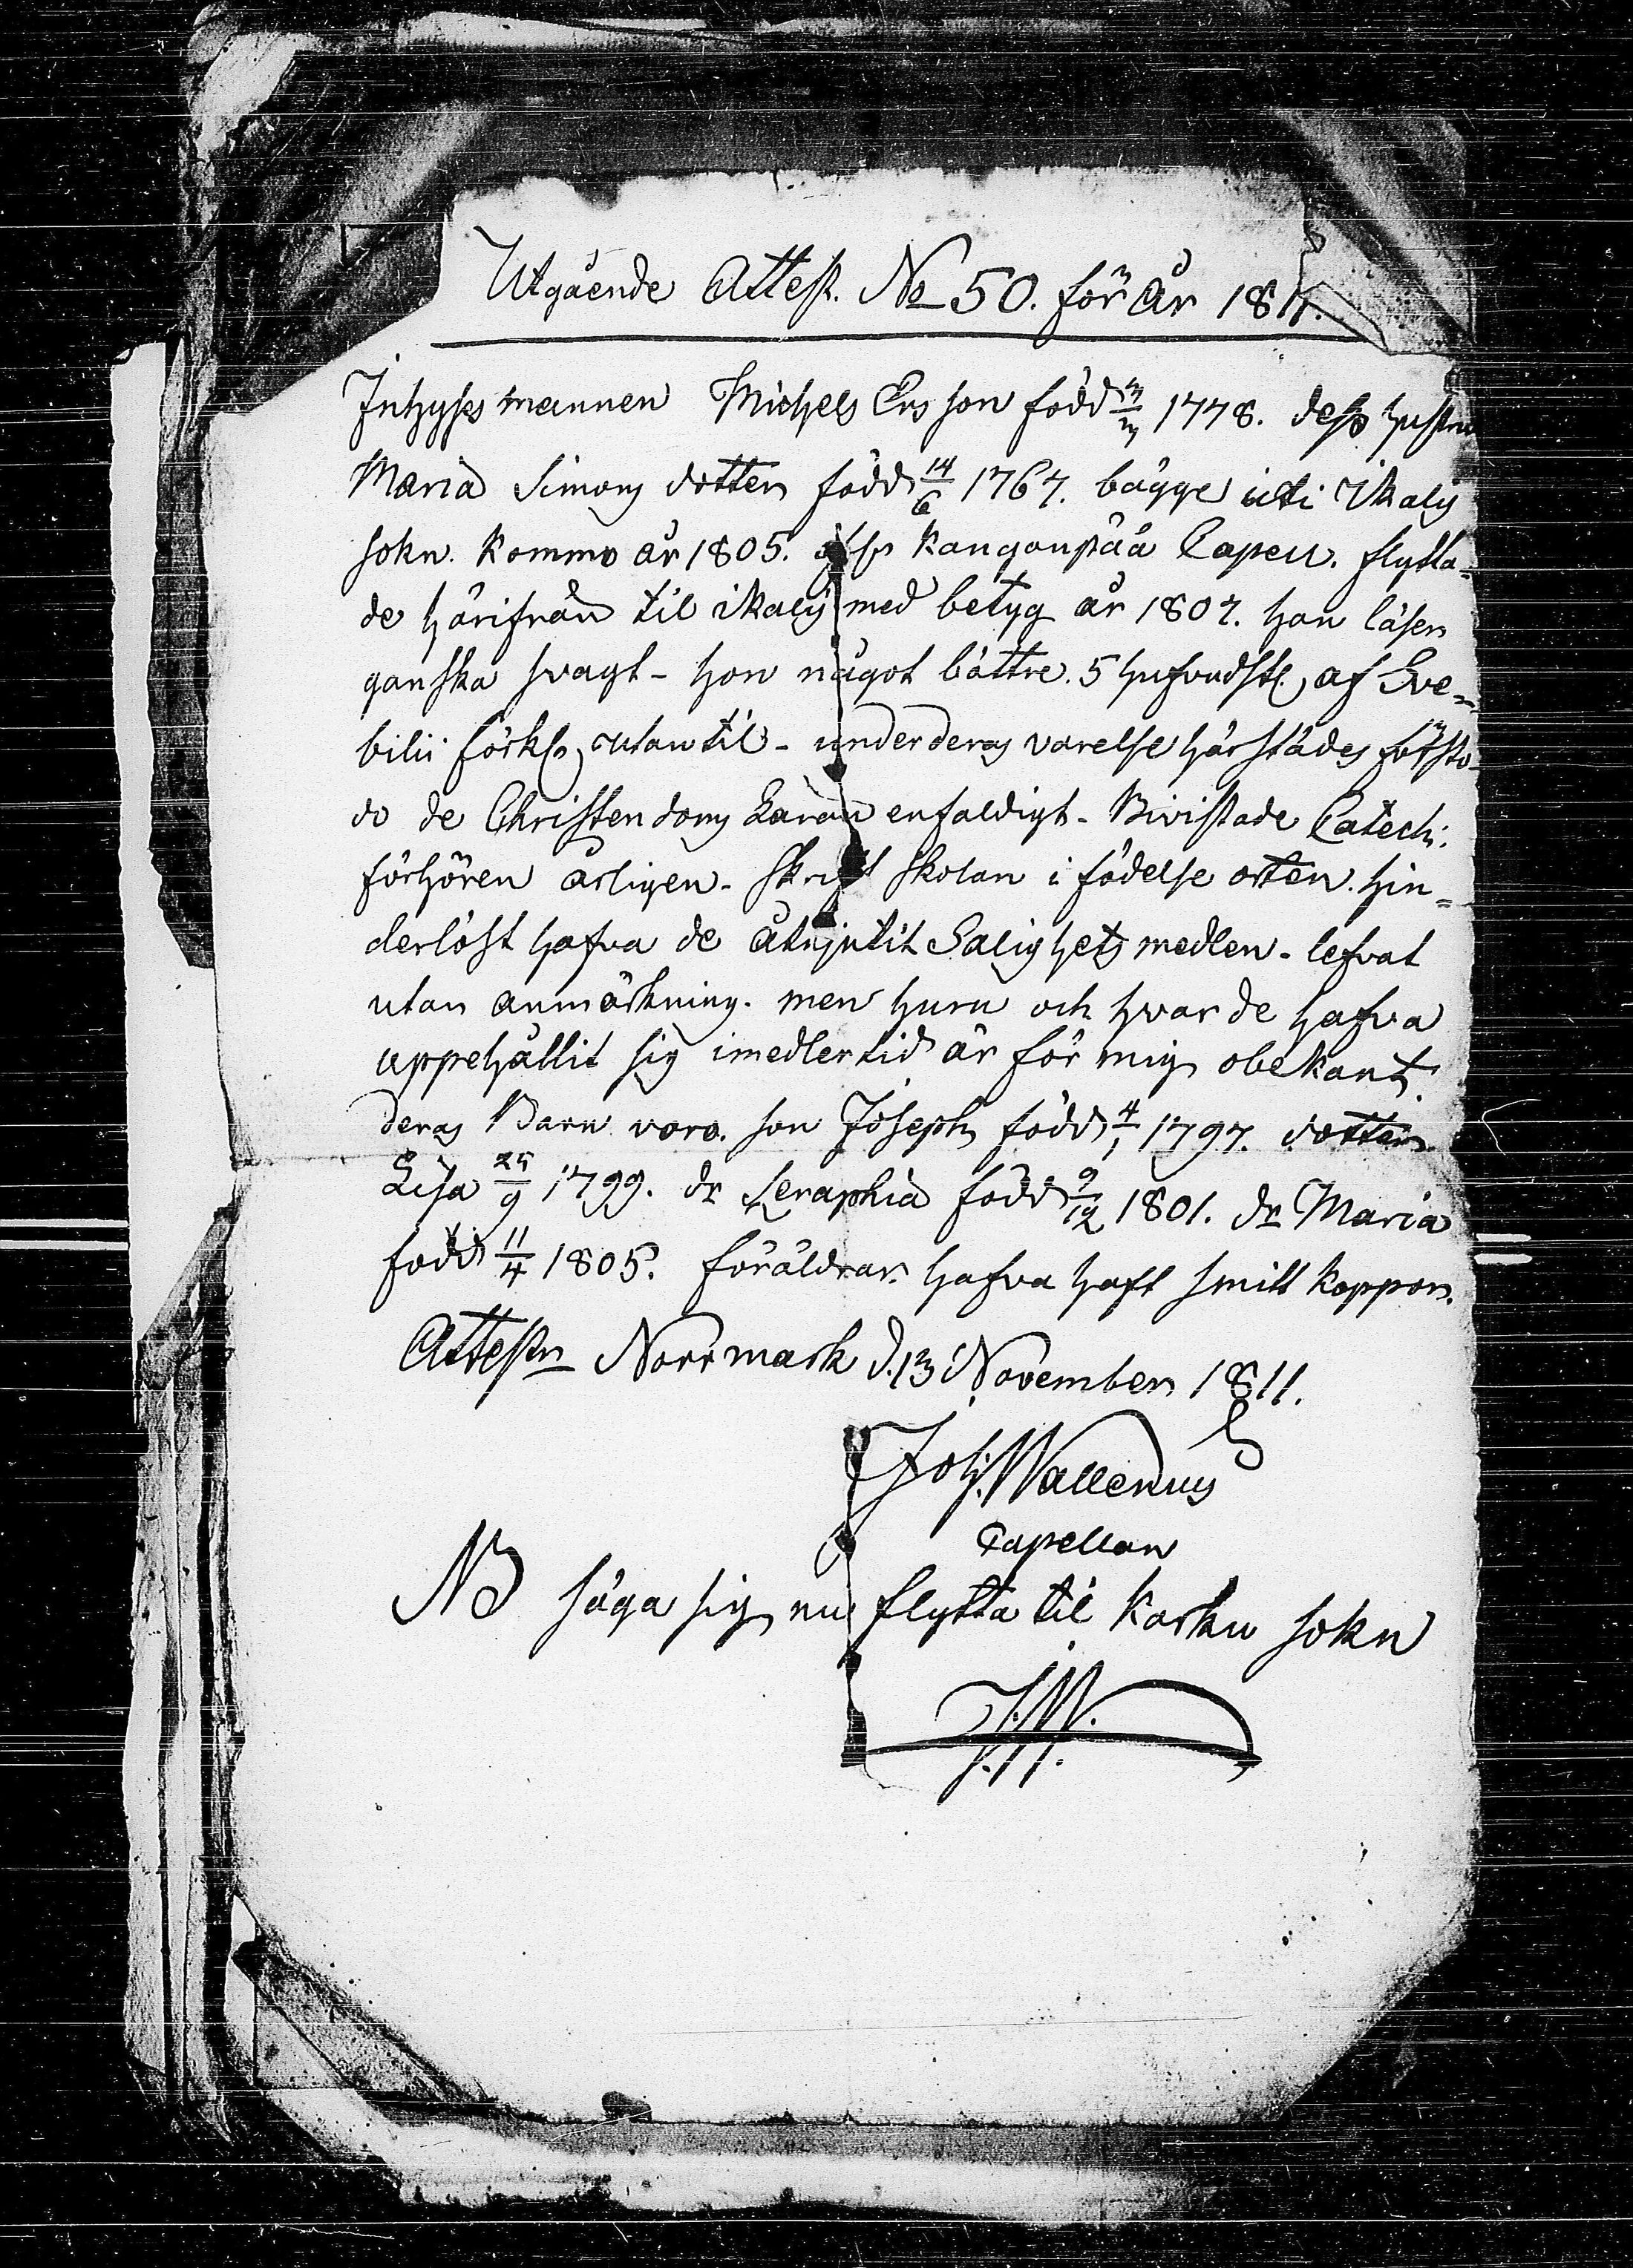 Utgående Attest. No 50. för år 1811.
Inhyses mannen Michels Ersson född 3/3 1778. dess hustru
Maria Simons dotter född 14/6 1767. bägge uti Ikalis
sokn. kommo år 1805. ifrån Kangonpää Capell. flytta=
de härifrån til ikalis med betyg år 1807. han läser
ganska svagt - hon något bättre. 5 hufvudst. af Sve=
bilii förkl. utantil - under deras varelse härstädes försto-
do de Christendoms Läran enfaldigt. Bivistade Catech:
förhören årligen. Skrift skolan i födelse orten. hin=
derlöst hafva de åtnjutit Salighets medlen. lefvat
utan anmärkning. men huru och hvar de hafva
uppehållit sig imedlertid är för mig obekant.
deras Barn voro. son Joseph född 4/1 1797. dotter.
Lisa 25/9 1799. dr Seraphia född 9/12 1801. dr Maria
född 11/4 1805. föräldrar hafva haft smitt koppor.
Attestr Norrmark d. 13 November 1811.
Joh. Wallenius
Capellan
NB säga sig nu flytta til Karku sokn
J.W.